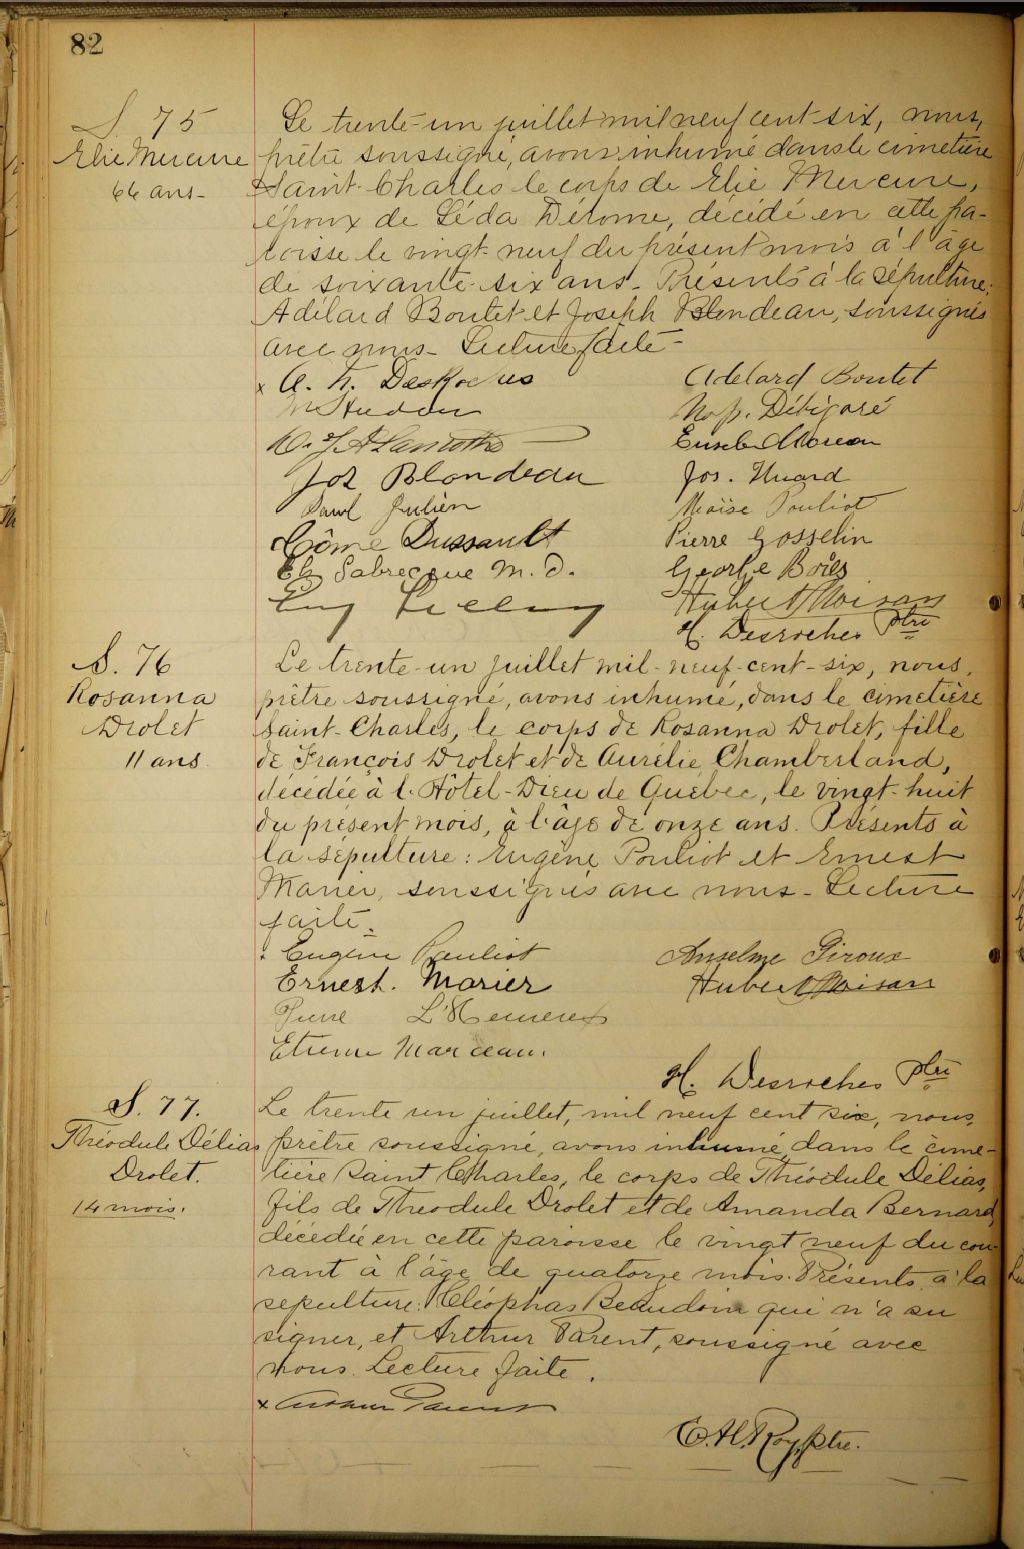 82
S. 75
Elie Mercure
66 ans-
Le trente-un juillet mil neuf cent-six, nous,
prêtre soussigné, avons inhumé dans le cimetière
Saint-Charles le corps de Elie Mercure,
époux de Léda Dérome, décédé en cette pa-
roisse le vingt-neuf du présent mois à l'âge
de soixante-six ans- Présents à la sépulture:
Adélard Boutet et Joseph Blondeau, soussignés
avec nous- Lecture faite-
x A. H. DesRoches
Adélard Boutet
Nap. Débigaré
Lamothe
Eusèbe Moreau
Jos Blondeau
Jos. Huard
Paul Julien
Moïse Pouliot
Côme Dussault
Pierre Gosselin
Labrecque M. D.
George Boïes
Hubert Moisan
H. Desroches Ptre
S. 76
Rosanna
Drolet
11 ans
Le trente-un juillet mil-neuf-cent-six, nous,
prêtre soussigné, avons inhumé, dans le cimetière
Saint-Charles, le corps de Rosanna Drolet, fille
de François Drolet et de Aurélie Chamberland,
décédée à l'Hôtel-Dieu de Québec, le vingt-huit
du présent mois, à l'âge de onze ans. Présents à
la sépulture: Eugène Pouliot et Ernest
Marier, soussignés avec nous- Lecture
faite.
Eugène Pouliot
Anselme Giroux
Ernest. Marier
Hubert Moisan
Pierre L'Heureux
Etienne Marceau.
H. Desroches Ptre
S. 77.
Théodule Délias
Drolet.
14 mois.
Le trente un juillet, mil neuf cent six, nous,
prêtre soussigné, avons inhumé, dans le cime-
tière Saint Charles, le corps de Théodule Délias,
fils de Theodule Drolet et de Amanda Bernard,
décédé en cette paroisse le vingt neuf du cou-
rant à l'âge de quatorze mois. Présents à la
sepulture: Cléophas Beaudoin qui n'a su
signer, et Arthur Parent, soussigné avec
nous. Lecture faite.
x Arthur Parent
E. H. Roy, ptre.